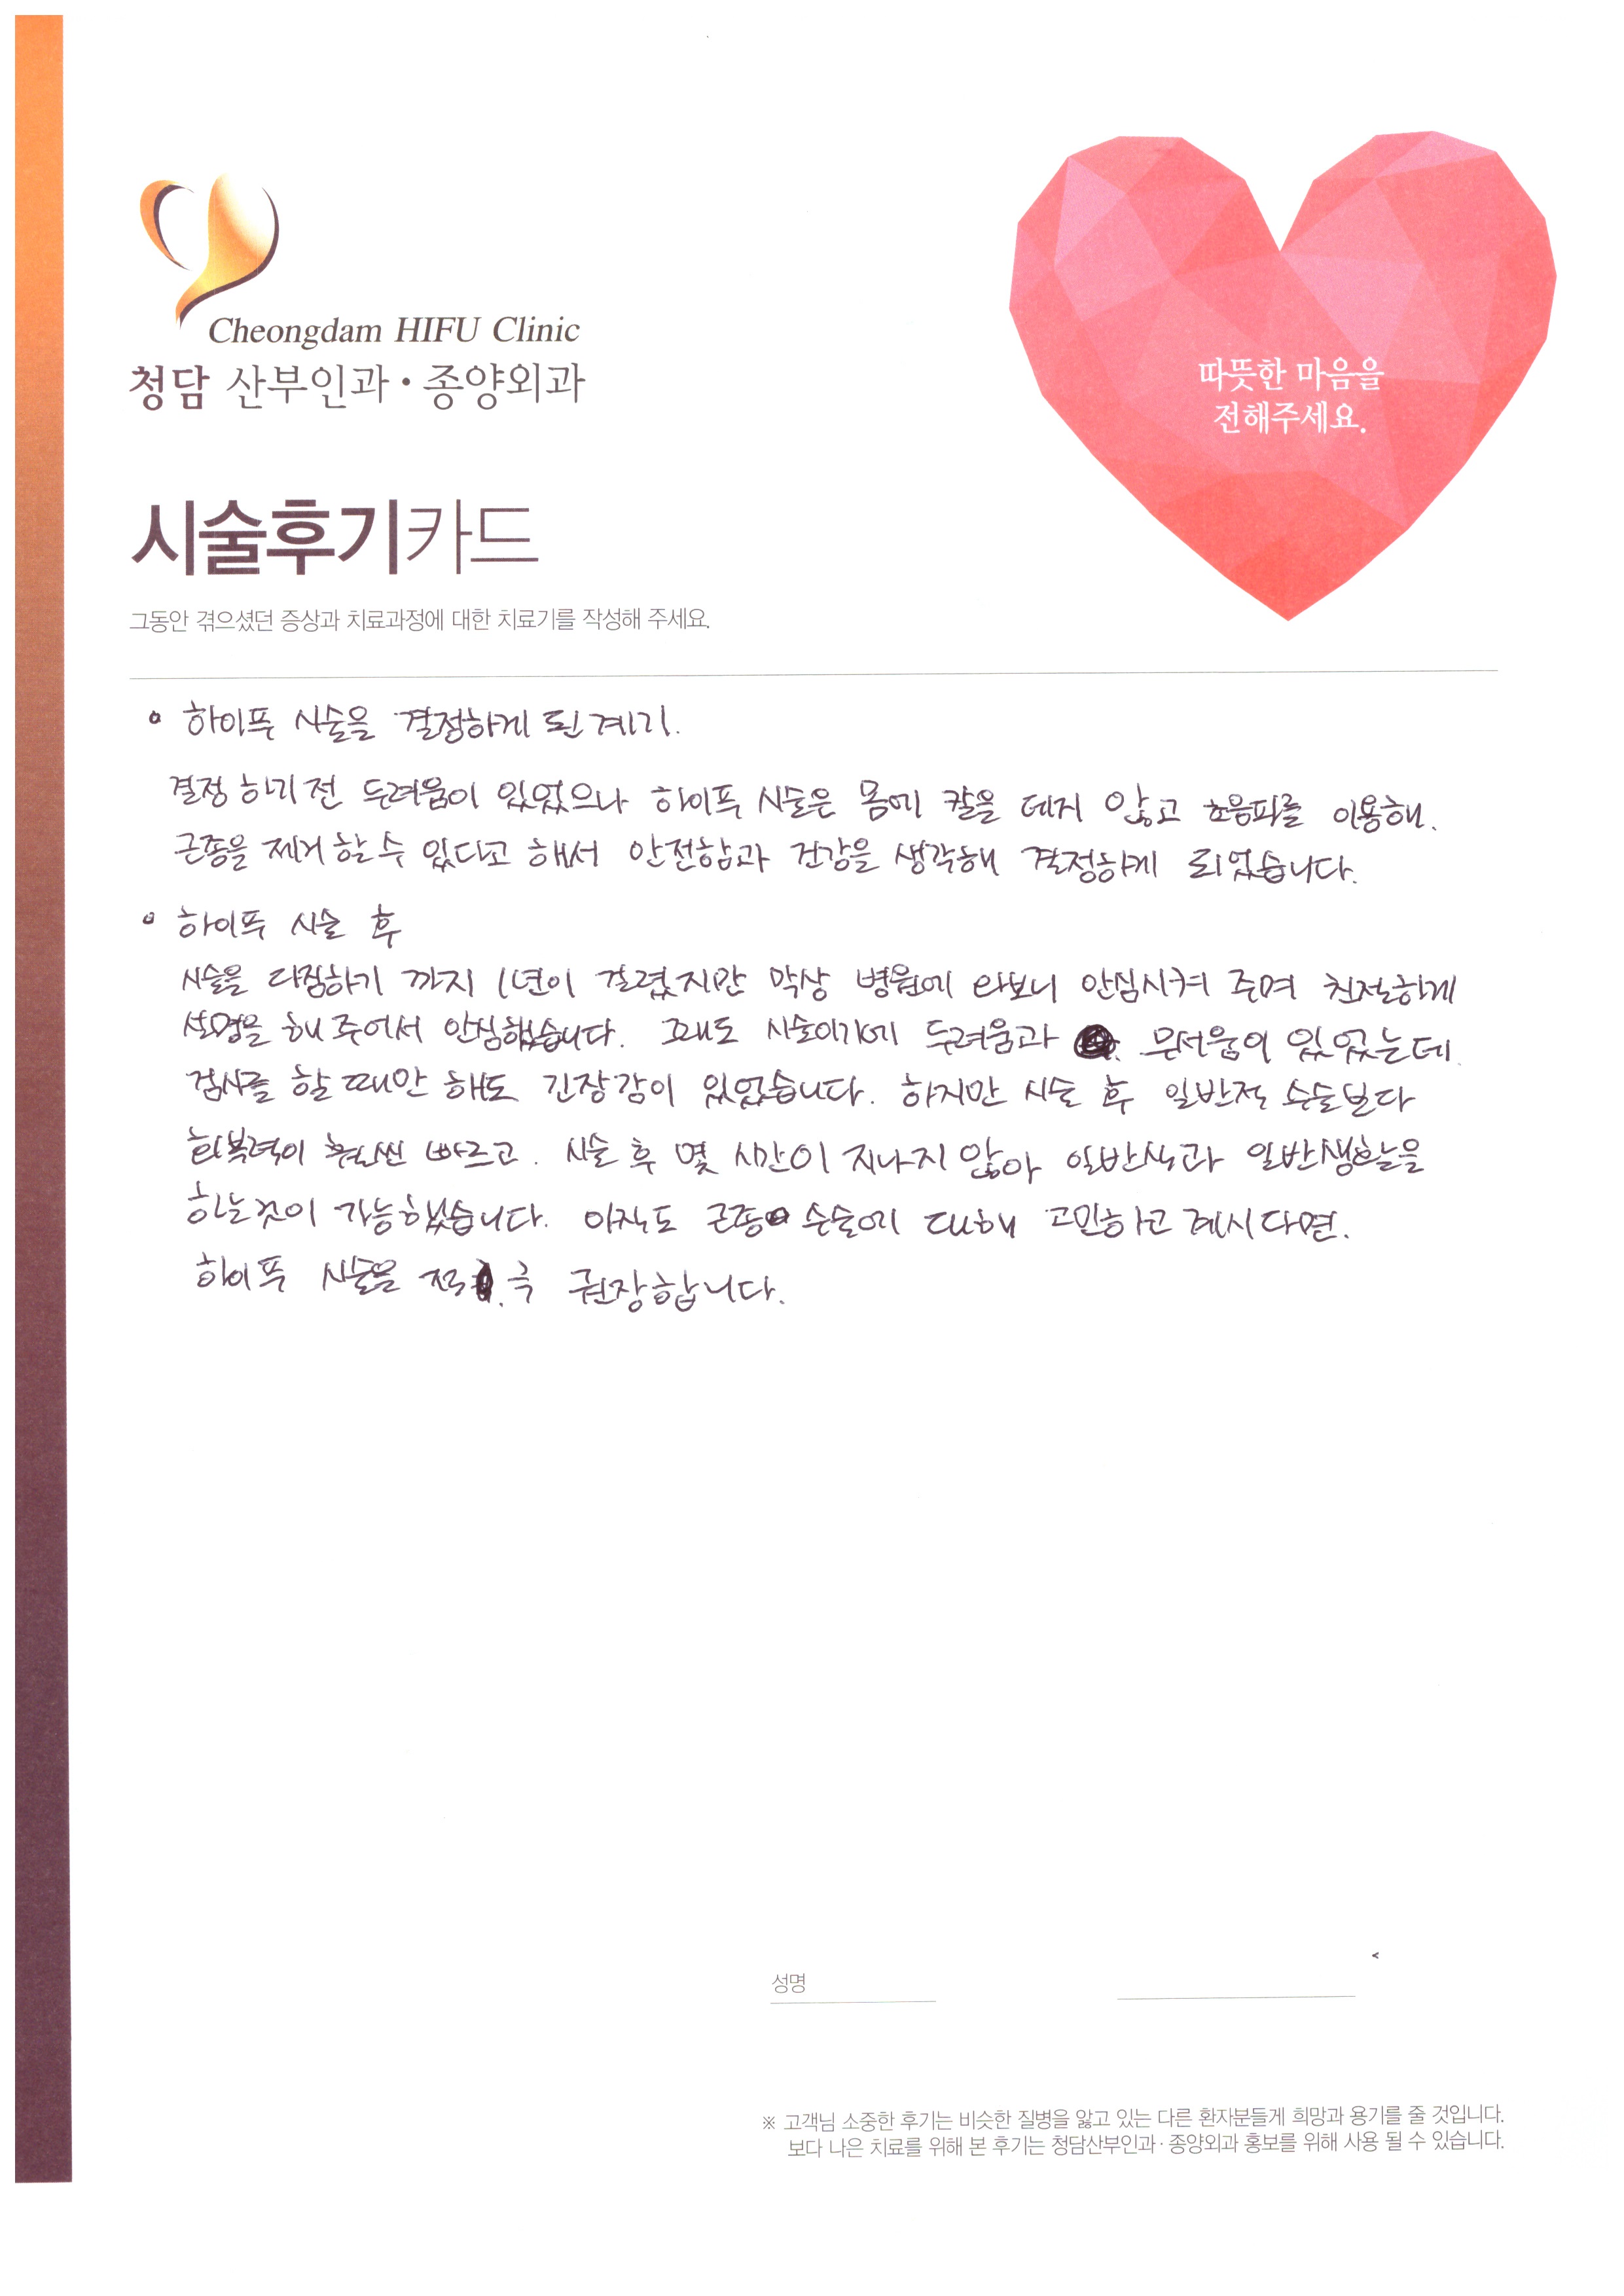 Cheongdam HIFU Clinic
청담 산부인과·종양외과
따뜻한 마음을
전해주세요.
시술후기카드
그동안 겪으셨던 증상과 치료과정에 대한 치료기를 작성해 주세요.
∘ 하이푸 시술을 결정하게 된 계기.
결정 하기 전 두려움이 있었으나 하이푸 시술은 몸에 칼을 데지 않고 초음파를 이용해.
근종을 제거 할 수 있다고 해서 안전함과 건강을 생각해 결정하게 되었습니다.
∘ 하이푸 시술 후
시술을 다짐하기 까지 1년이 걸렸지만 막상 병원에 와보니 안심시켜 주며 친절하게
설명을 해 주어서 안심했습니다. 그래도 시술이기에 두려움과 무서움이 있었는데.
검사를 할 때만 해도 긴장감이 있었습니다. 하지만 시술 후 일반적 수술보다
회복력이 훨씬 빠르고. 시술 후 몇 시간이 지나지 않아 일반식과 일반생활을
하는것이 가능했습니다. 아직도 근종 수술에 대해 고민하고 계시다면.
하이푸 시술을 적극 권장합니다.
성명
※ 고객님 소중한 후기는 비슷한 질병을 앓고 있는 다른 환자분들게 희망과 용기를 줄 것입니다.
보다 나은 치료를 위해 본 후기는 청담산부인과·종양외과 홍보를 위해 사용 될 수 있습니다.